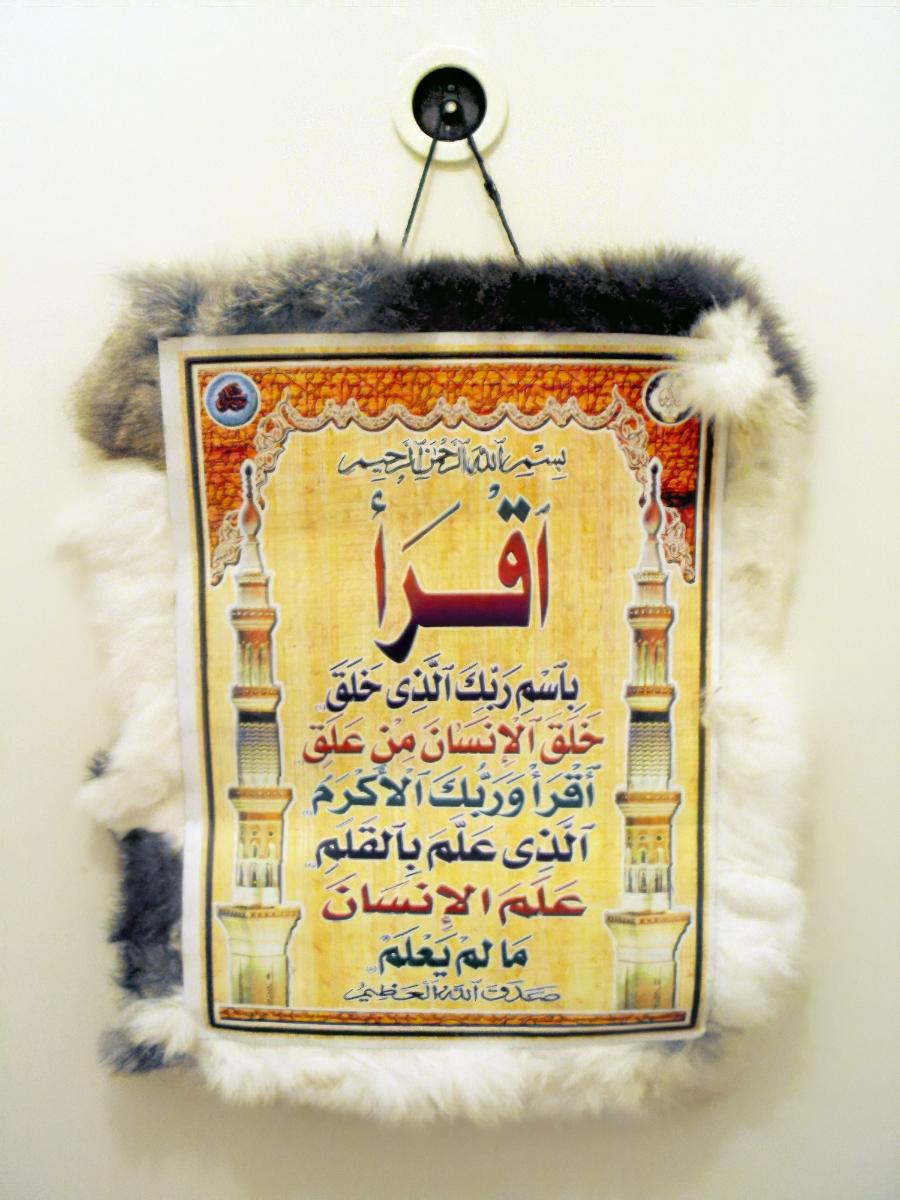 بِسْمِ اللَّهِ الرَّحْمَٰنِ الرَّحِيمِ
ٱقْرَأْ
بِٱسْمِ رَبِّكَ ٱلَّذِى خَلَقَ
خَلَقَ ٱلْإِنسَانَ مِنْ عَلَقٍ
ٱقْرَأْ وَرَبُّكَ ٱلْأَكْرَمُ
ٱلَّذِى عَلَّمَ بِٱلْقَلَمِ
عَلَّمَ ٱلْإِنسَانَ
مَا لَمْ يَعْلَمْ
صدق الله العظيم